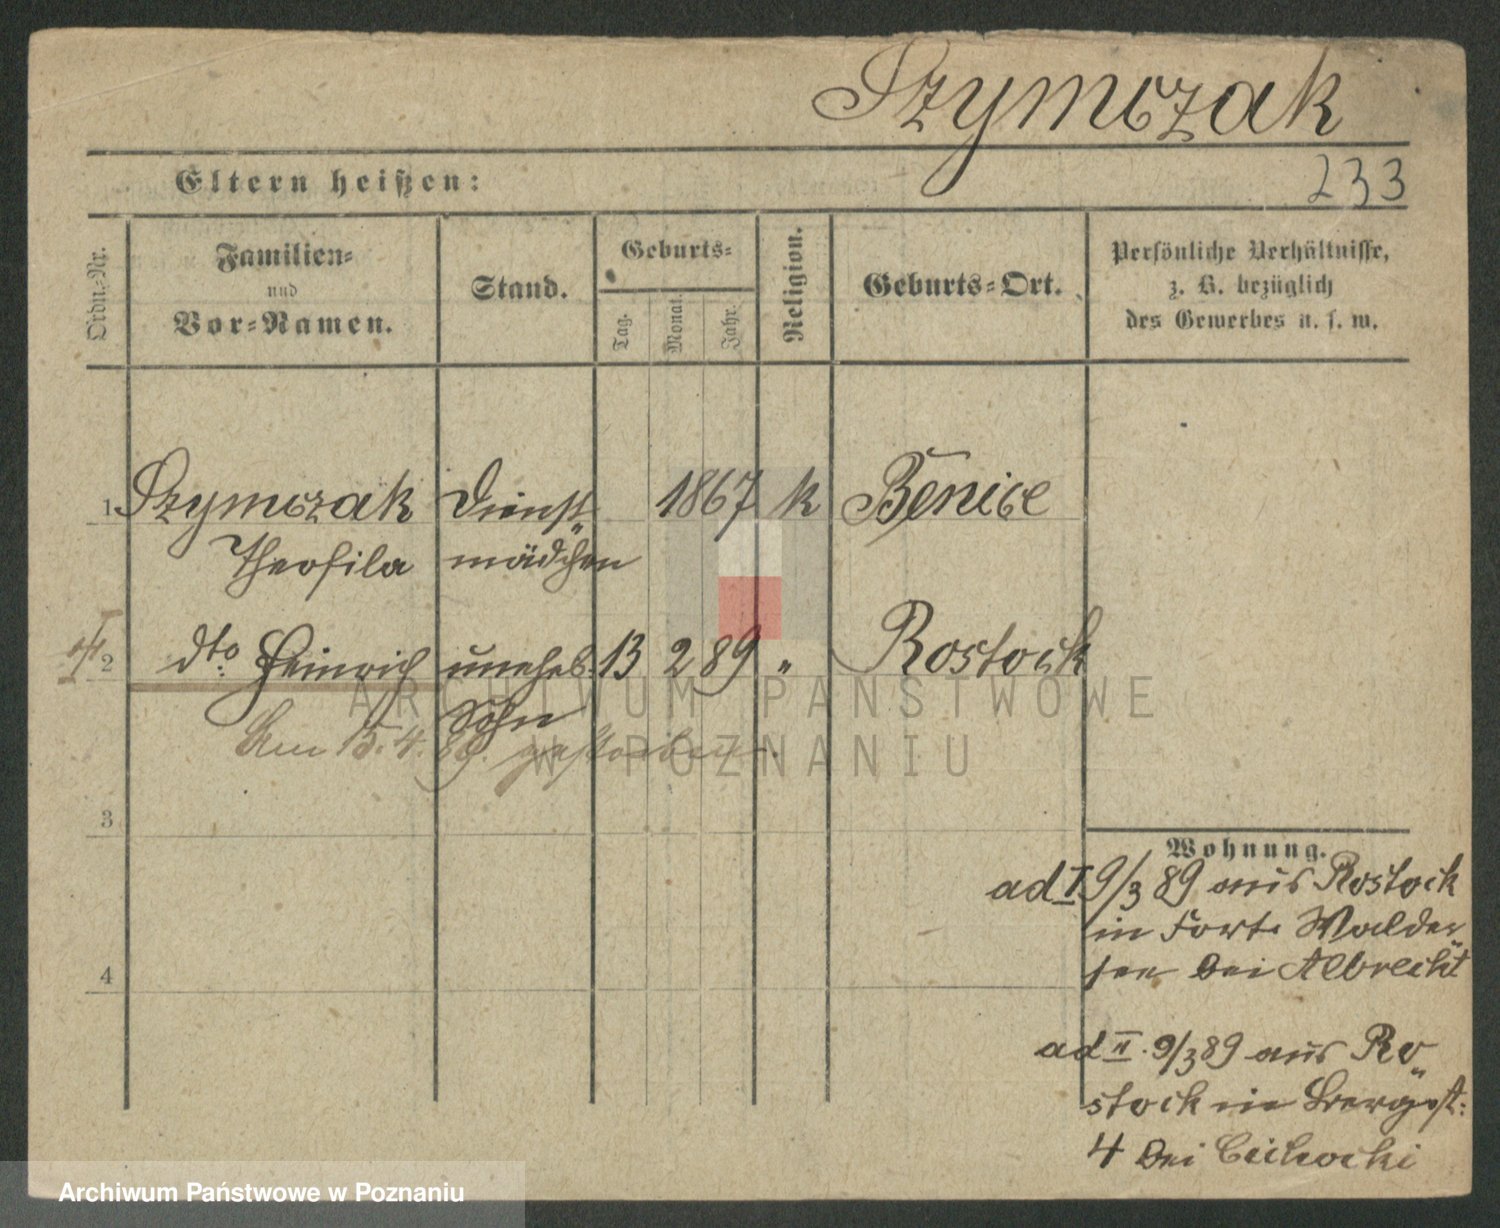 Szymczak
Eltern heißen:
233
Ordn.-Nr.
Familien-
und
Vor-Namen.
Stand.
Geburts-
Tag.
Monat.
Jahr.
Religion.
Geburts-Ort.
Persönliche Verhältnisse,
z. B. bezüglich
des Gewerbes u. s. w.
1 Szymczak Dienst- 1867 k Benice
Theofila mädchen
2 dto Heinrich unehel. 13 2 89 " Rostock
Sohn
Am 15.4.89. gestorben.
3
4
Wohnung.
ad I 9/3 89 aus Rostock
in Fort Walder-
see bei Albrecht
ad II. 9/3 89 aus Ro-
stock in Bergst:
4 bei Cichocki
ARCHIWUM PAŃSTWOWE
W POZNANIU
Archiwum Państwowe w Poznaniu